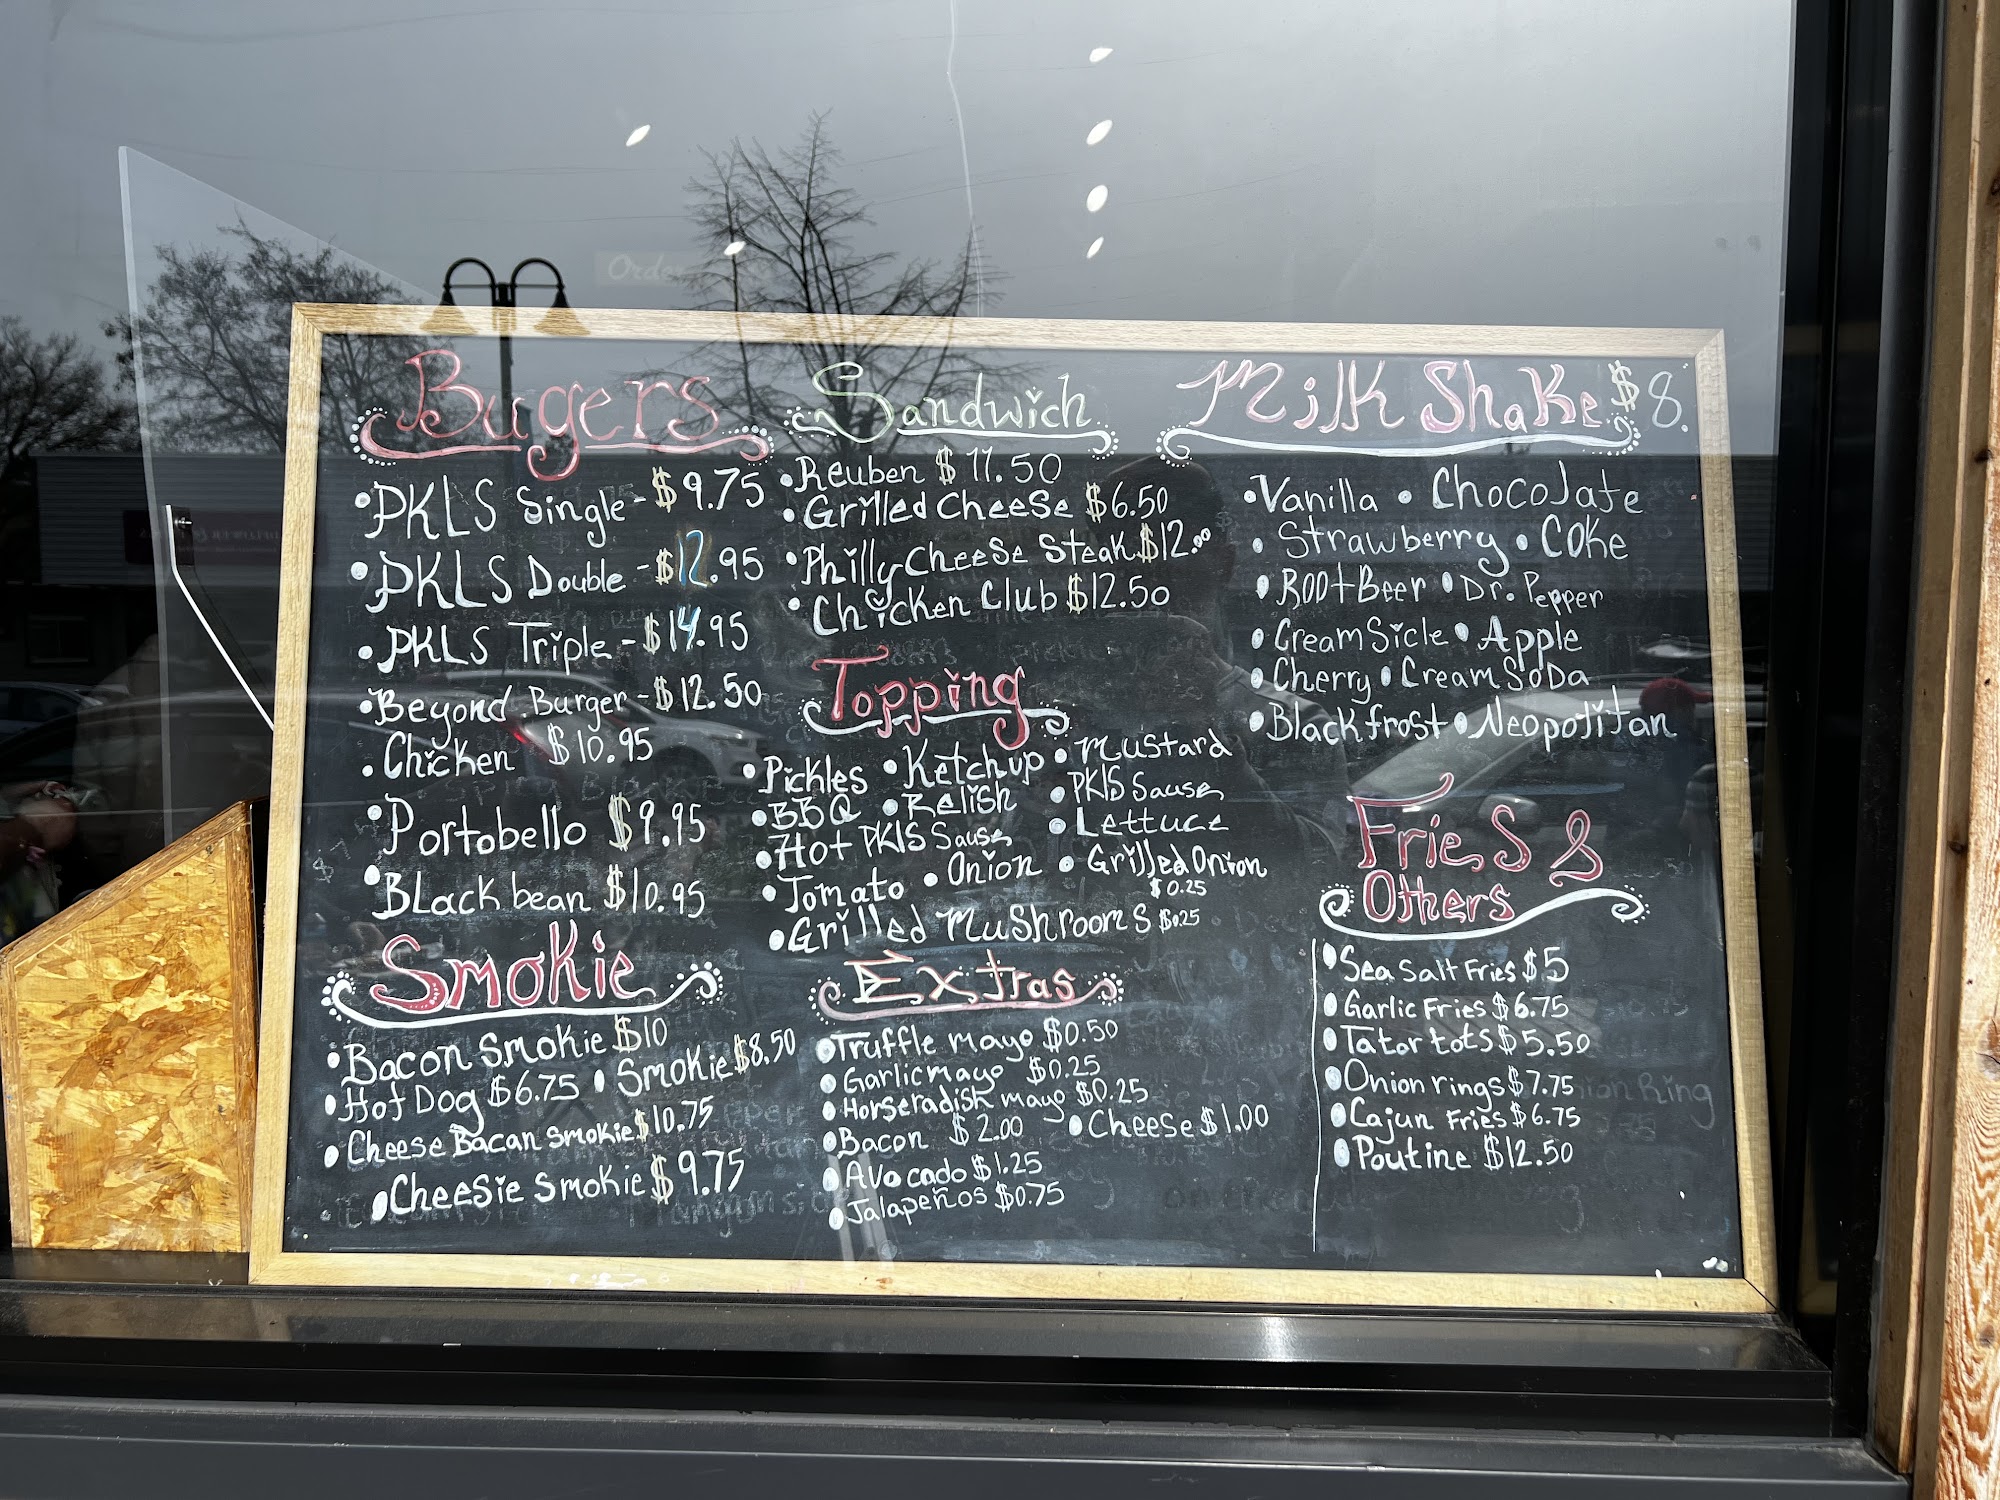 Order
Bugers
• PKLS Single - $9.75
• PKLS Double - $12.95
• PKLS Triple - $14.95
• Beyond Burger - $12.50
• Chicken $10.95
• Portobello $9.95
• Black bean $10.95
Smokie
• Bacon Smokie $10
• Hot Dog $6.75 • Smokie $8.50
• Cheese Bacan Smokie $10.75
• Cheesie Smokie $9.75
Sandwich
• Reuben $11.50
• Grilled Cheese $6.50
• Philly Cheese Steak $12.00
• Chicken Club $12.50
Topping
• Pickles • Ketchup • Mustard
• BBQ • Relish • PKLS Sause
• Hot PKLS Sause • Lettuce
• Tomato • Onion • Grilled Onion $0.25
• Grilled Mushrooms $0.25
Extras
• Truffle mayo $0.50
• Garlic mayo $0.25
• Horseradish mayo $0.25
• Bacon $2.00 • Cheese $1.00
• Avocado $1.25
• Jalapeños $0.75
Milk Shake $8.
• Vanilla • Chocolate
• Strawberry • Coke
• Root Beer • Dr. Pepper
• Creamsicle • Apple
• Cherry • Cream Soda
• Black frost • Neopolitan
Fries &
Others
• Sea Salt Fries $5
• Garlic Fries $6.75
• Tator tots $5.50
• Onion rings $7.75
• Cajun Fries $6.75
• Poutine $12.50